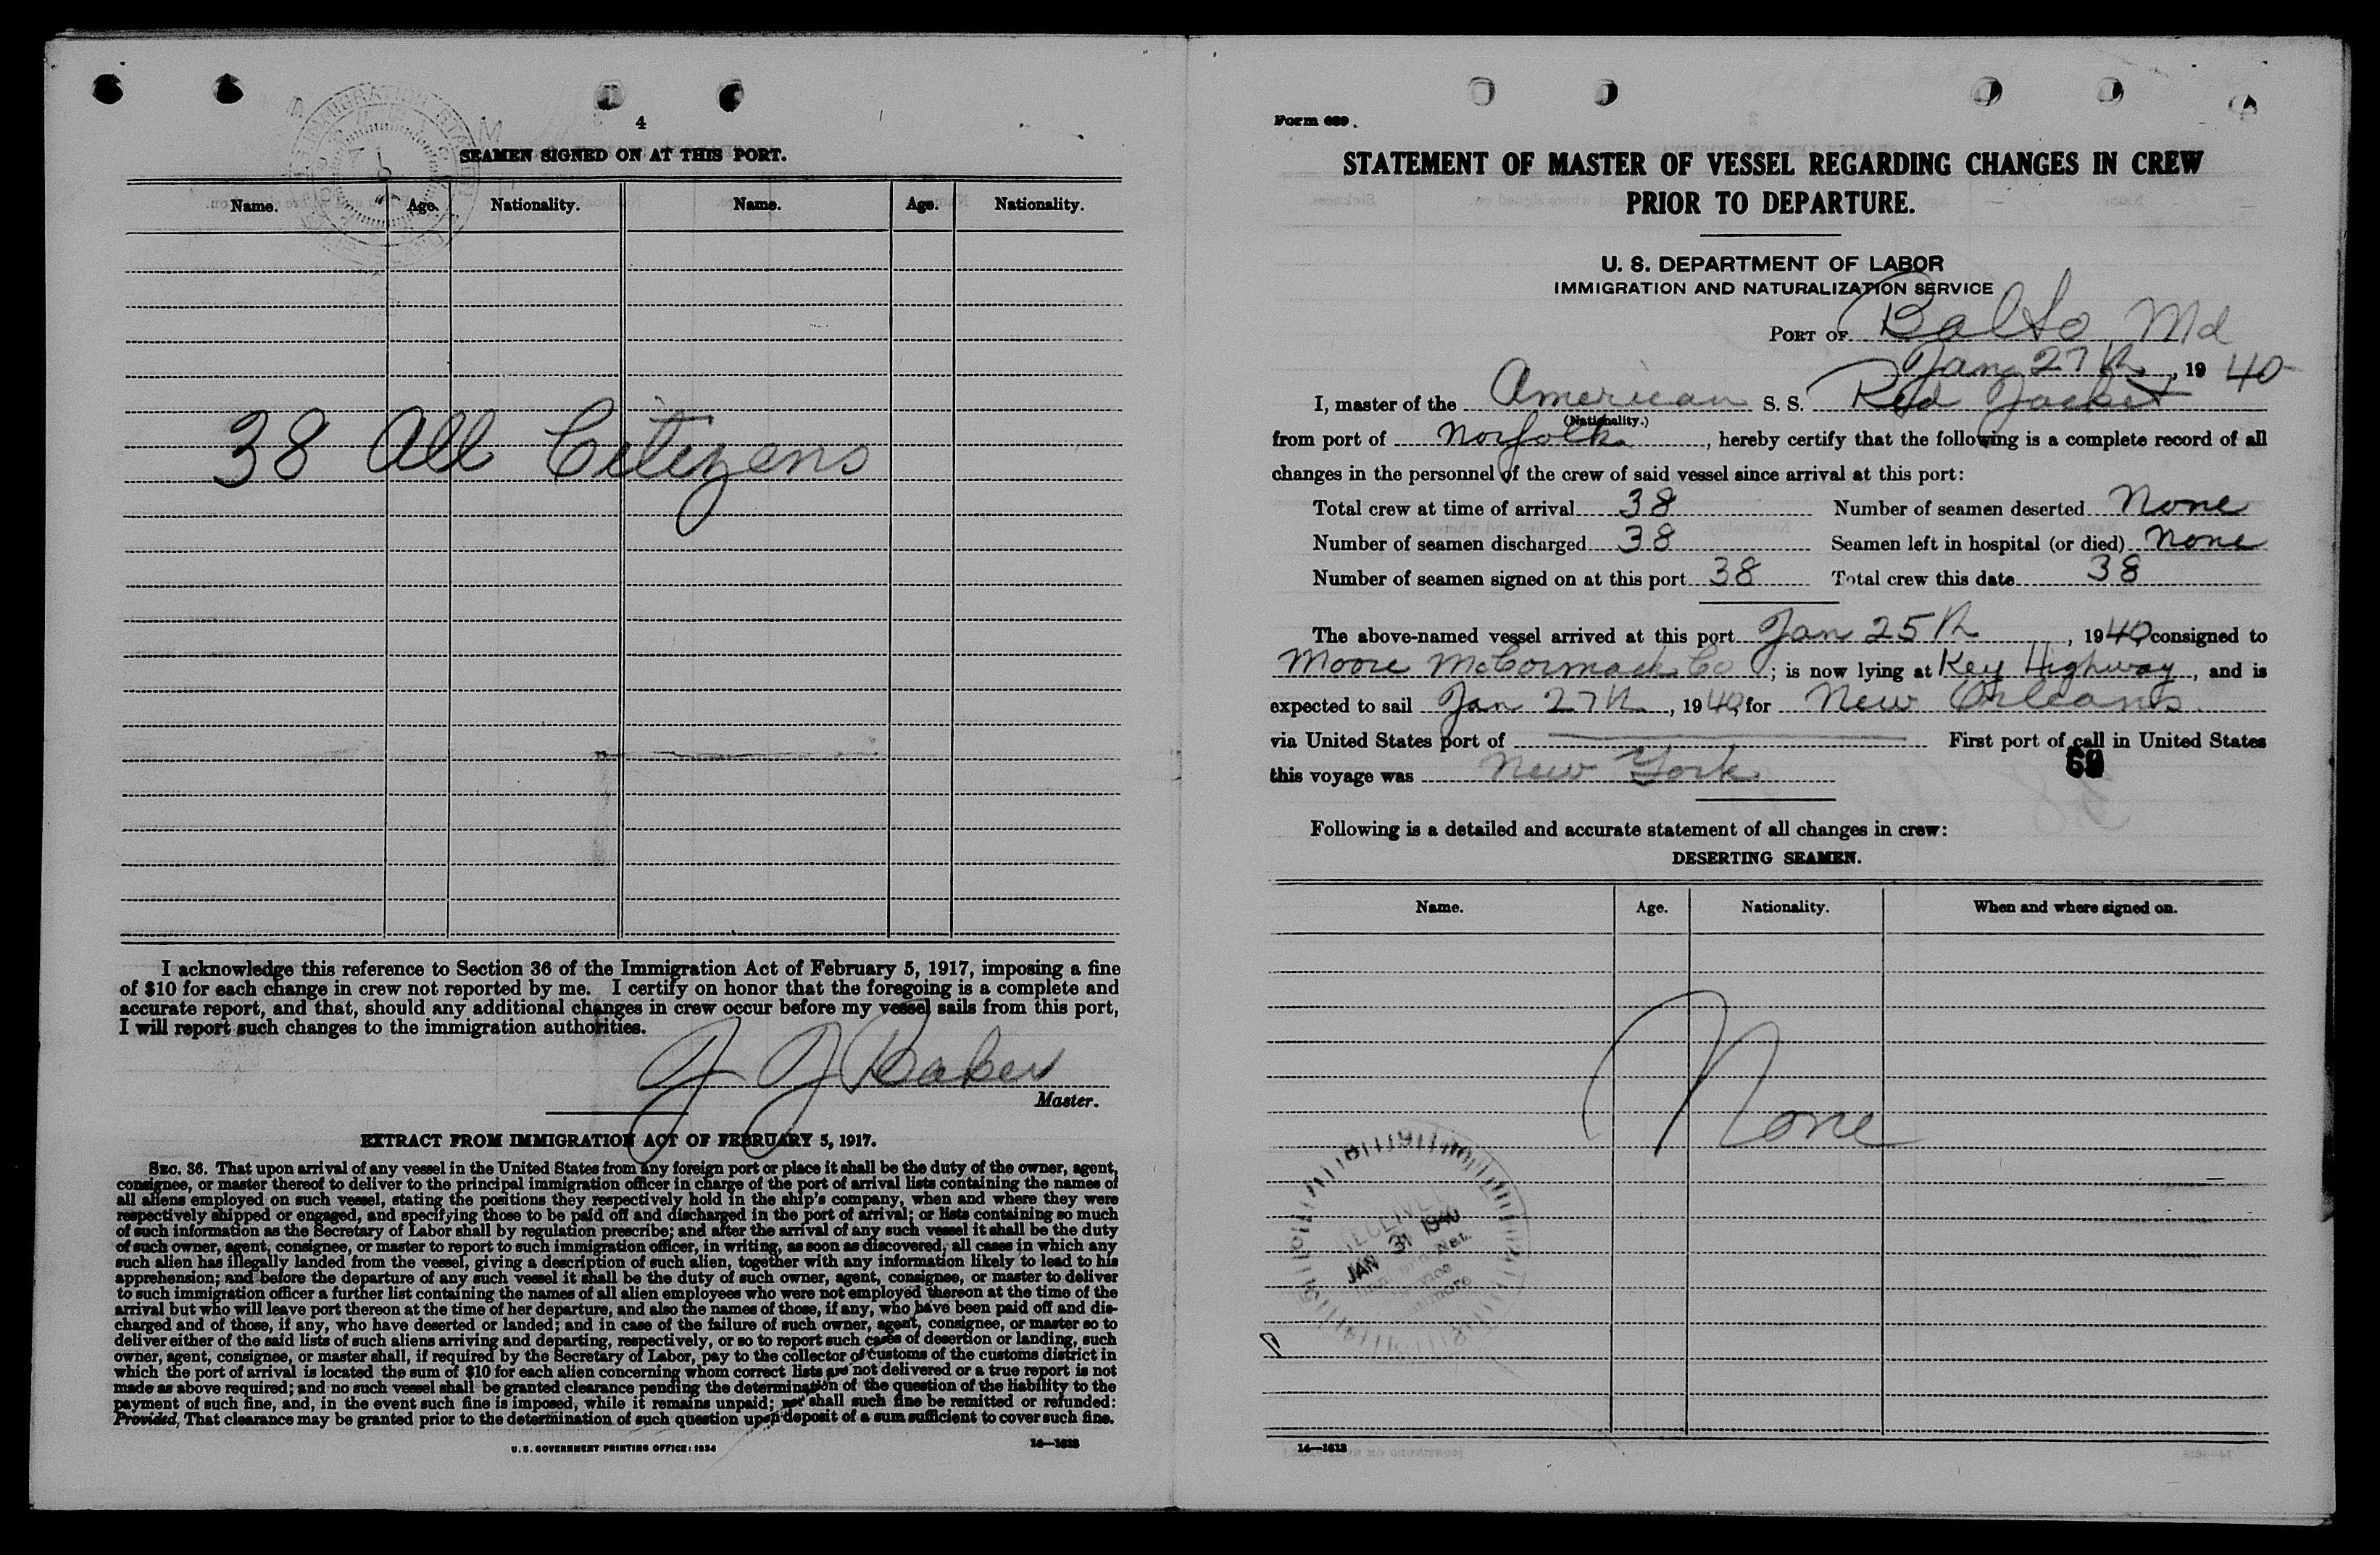 4
SEAMEN SIGNED ON AT THIS PORT.
Name. Age. Nationality. Name. Age. Nationality.
38 All Citizens
I acknowledge this reference to Section 36 of the Immigration Act of February 5, 1917, imposing a fine
of $10 for each change in crew not reported by me. I certify on honor that the foregoing is a complete and
accurate report, and that, should any additional changes in crew occur before my vessel sails from this port,
I will report such changes to the immigration authorities.
J J Baker
Master.
EXTRACT FROM IMMIGRATION ACT OF FEBRUARY 5, 1917.
SEC. 36. That upon arrival of any vessel in the United States from any foreign port or place it shall be the duty of the owner, agent,
consignee, or master thereof to deliver to the principal immigration officer in charge of the port of arrival lists containing the names of
all aliens employed on such vessel, stating the positions they respectively hold in the ship's company, when and where they were
respectively shipped or engaged, and specifying those to be paid off and discharged in the port of arrival; or lists containing so much
of such information as the Secretary of Labor shall by regulation prescribe; and after the arrival of any such vessel it shall be the duty
of such owner, agent, consignee, or master to report to such immigration officer, in writing, as soon as discovered, all cases in which any
such alien has illegally landed from the vessel, giving a description of such alien, together with any information likely to lead to his
apprehension; and before the departure of any such vessel it shall be the duty of such owner, agent, consignee, or master to deliver
to such immigration officer a further list containing the names of all alien employees who were not employed thereon at the time of the
arrival but who will leave port thereon at the time of her departure, and also the names of those, if any, who have been paid off and dis-
charged and of those, if any, who have deserted or landed; and in case of the failure of such owner, agent, consignee, or master so to
deliver either of the said lists of such aliens arriving and departing, respectively, or so to report such cases of desertion or landing, such
owner, agent, consignee, or master shall, if required by the Secretary of Labor, pay to the collector of customs of the customs district in
which the port of arrival is located the sum of $10 for each alien concerning whom correct lists are not delivered or a true report is not
made as above required; and no such vessel shall be granted clearance pending the determination of the question of the liability to the
payment of such fine, and, in the event such fine is imposed, while it remains unpaid; nor shall such fine be remitted or refunded:
Provided, That clearance may be granted prior to the determination of such question upon deposit of a sum sufficient to cover such fine.
U. S. GOVERNMENT PRINTING OFFICE: 1934 14—1613
Form 689.
STATEMENT OF MASTER OF VESSEL REGARDING CHANGES IN CREW
PRIOR TO DEPARTURE.
U. S. DEPARTMENT OF LABOR
IMMIGRATION AND NATURALIZATION SERVICE
PORT OF Balto Md
Jan 27th, 19 40
I, master of the American S. S. Red Jacket
(Nationality.)
from port of Norfolk, hereby certify that the following is a complete record of all
changes in the personnel of the crew of said vessel since arrival at this port:
Total crew at time of arrival 38 Number of seamen deserted None
Number of seamen discharged 38 Seamen left in hospital (or died) None
Number of seamen signed on at this port 38 Total crew this date 38
The above-named vessel arrived at this port Jan 25th, 1940, consigned to
Moore McCormack Co; is now lying at Key Highway, and is
expected to sail Jan 27th, 1940, for New Orleans
via United States port of First port of call in United States
this voyage was New York
69
Following is a detailed and accurate statement of all changes in crew:
DESERTING SEAMEN.
Name. Age. Nationality. When and where signed on.
None
RECEIVED
JAN 31 1940
14—1613